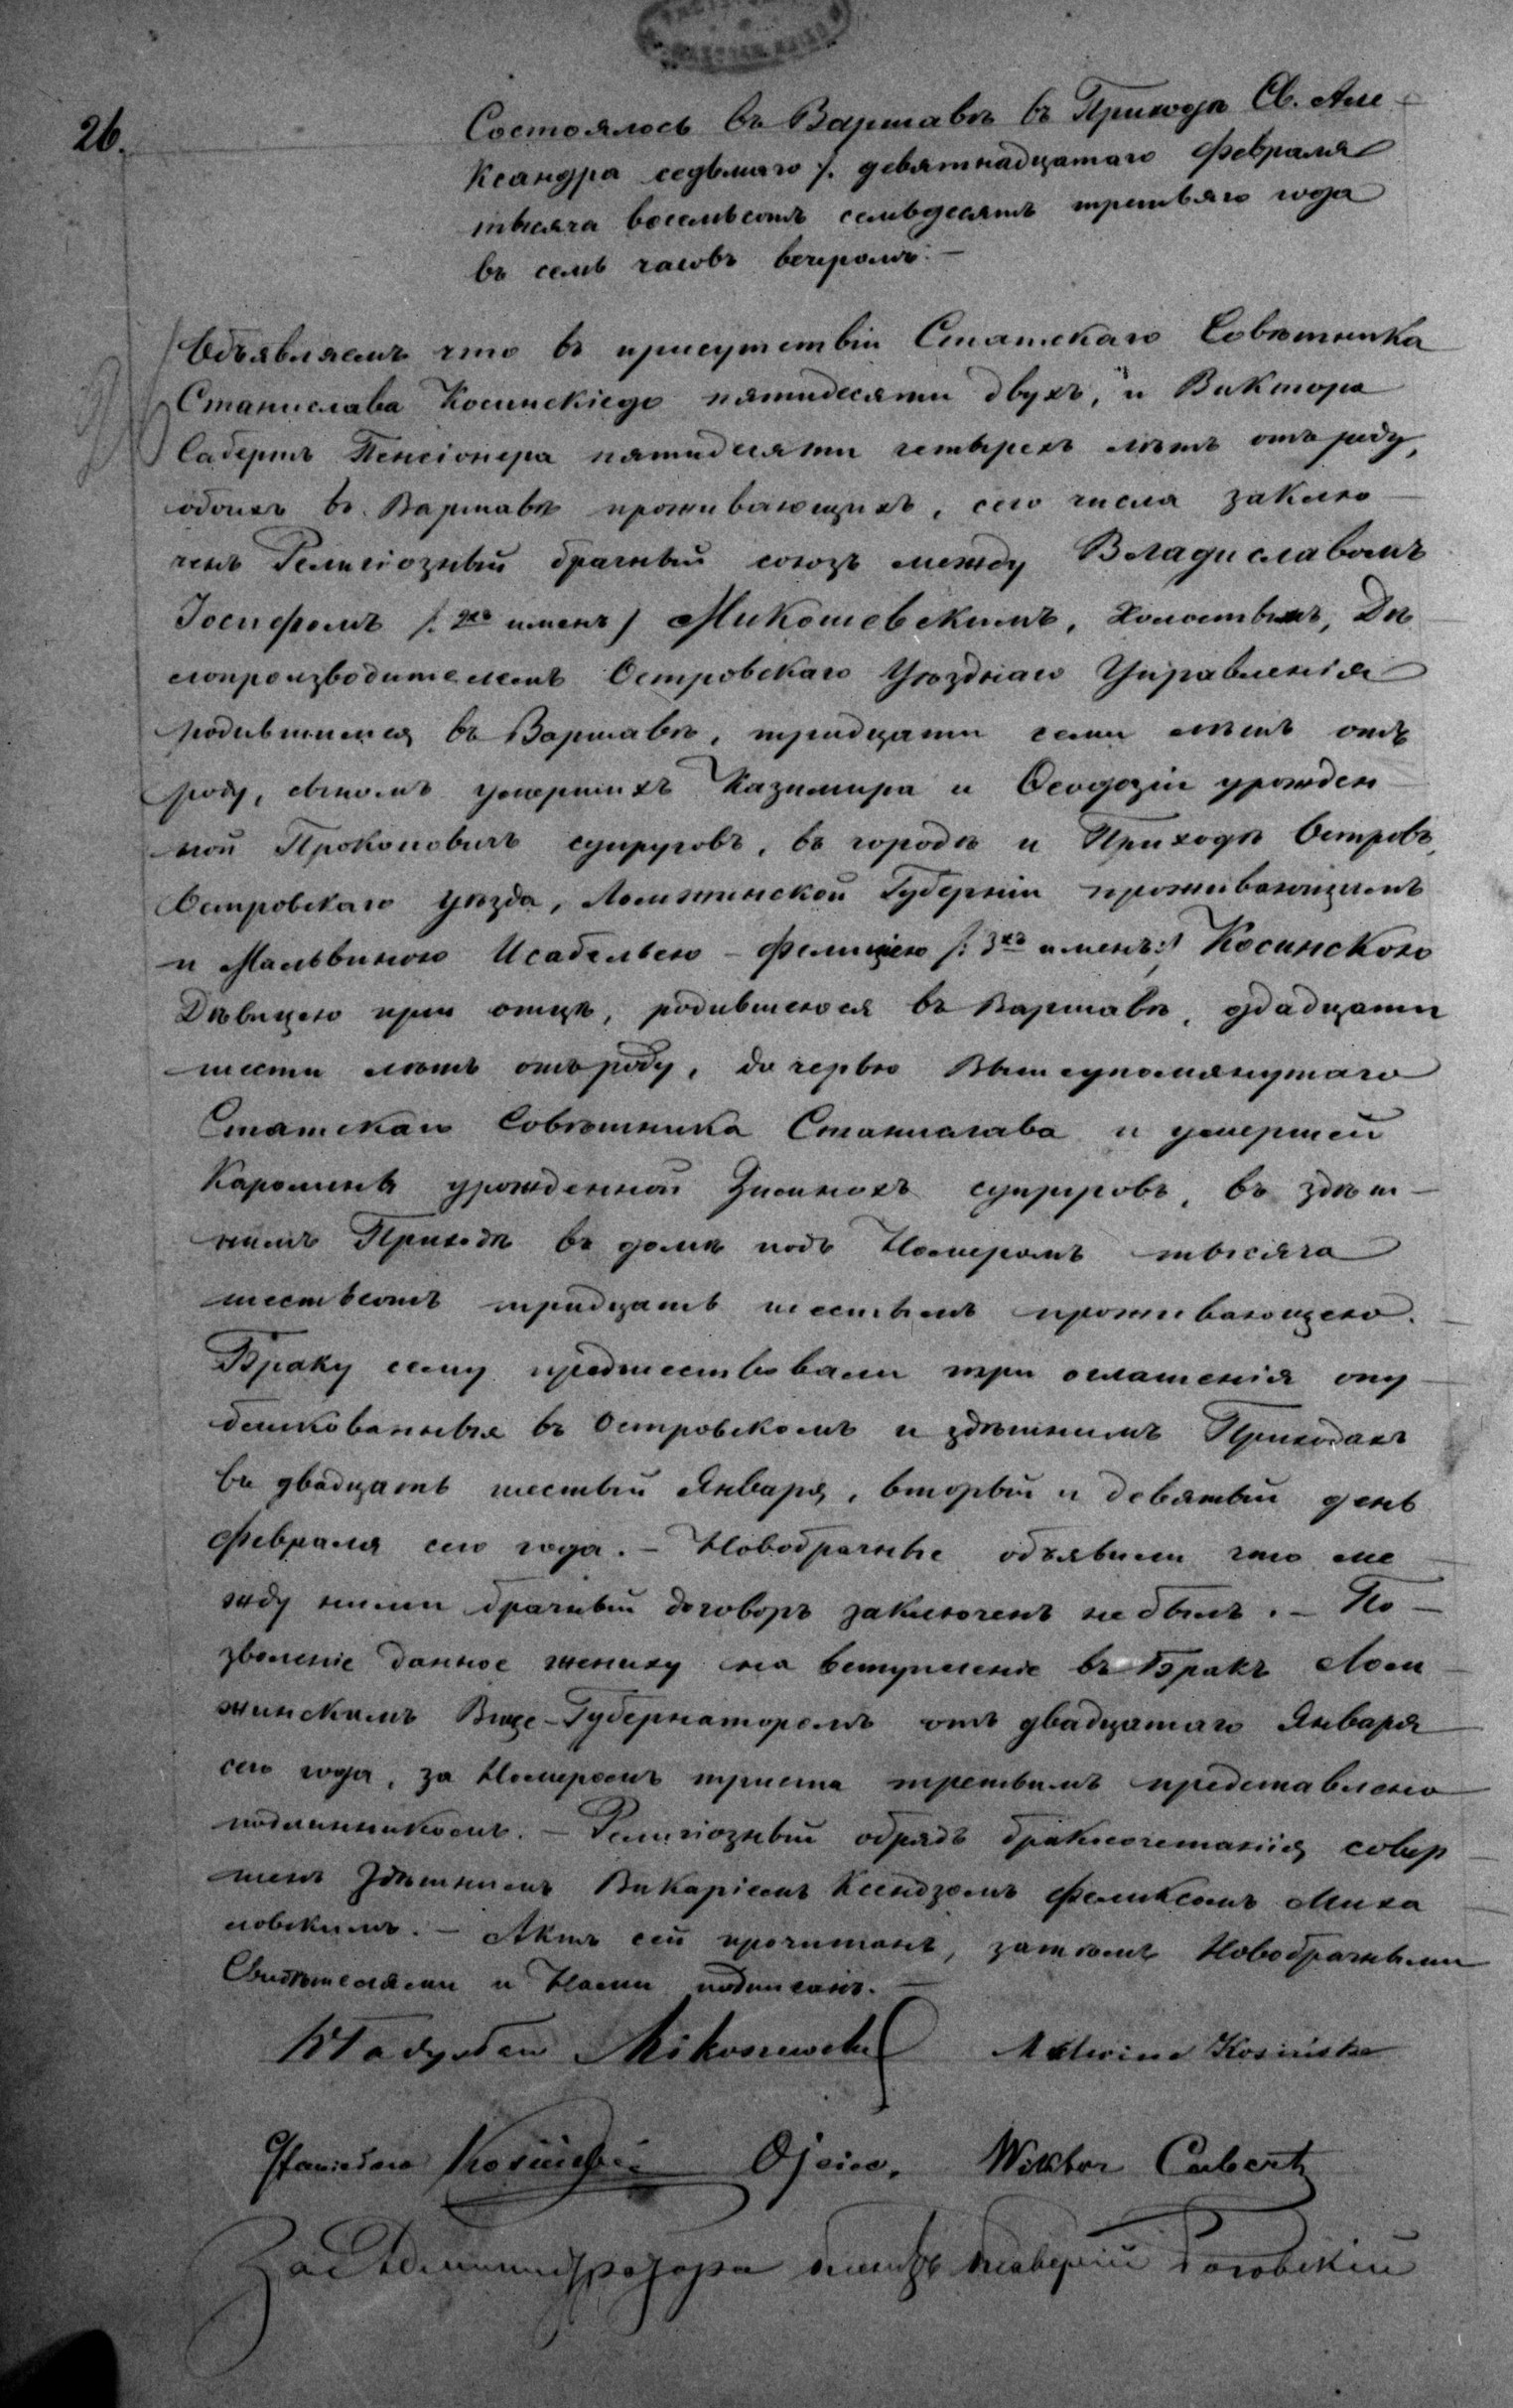 26.
Состоялось въ Варшавѣ въ Приходѣ Св. Але-
ксандра седьмаго /. девятнадцатаго Февраля
тысяча восемьсотъ семьдесятъ третьяго года
въ семь часовъ вечеромъ. —
Объявляемъ что въ присутствіи Статскаго Совѣтника
Станислава Косинскіего пятидесяти двухъ, и Виктора
Саберть Пенсіонера пятидесяти четырехъ лѣтъ отъ роду,
обоихъ въ Варшавѣ проживающихъ, сего числа заклю-
ченъ Религіозный брачный союзъ между Владиславомъ
Іосифомъ /. 2хъ именъ / Микошевскимъ, Холостымъ, Дѣ
лопроизводителемъ Островскаго Уѣзднаго Управленія
родившимся въ Варшавѣ, тридцати семи лѣтъ отъ
роду, сыномъ умершихъ Казимира и Ѳеодозіи урожден-
ной Прокоповичъ супруговъ, въ городѣ и Приходѣ Островъ,
Островскаго уѣзда, Ломжинской Губерніи проживающимъ
и Мальвиною Исабельею - Фелиціею /: 3хъ именъ :/ Косинскою
Дѣвицею при отцѣ, родившеюся въ Варшавѣ, двадцати
шести лѣтъ отъ роду, дочерью Вышеупомянутаго
Статскаго Совѣтника Станислава и умершей
Каролины урожденной супруговъ, въ здѣш-
нимъ Приходѣ въ домѣ подъ Номеромъ тысяча
шестьсотъ тридцать шестымъ проживающею.
Браку сему предшествовали три оглашенія опу-
бликованныя въ Островскомъ и здѣшнимъ Приходахъ
въ двадцать шестый Января, вторый и девятый день
Февраля сего года. — Новобрачные объявили что ме-
жду ними брачный договоръ заключенъ не былъ. — По-
зволеніе данное жениху на вступленіе въ Бракъ Лом-
жинскимъ Вице-Губернаторомъ отъ двадцатаго Января
сего года, за Номеромъ триста третьимъ представлено
подлинникомъ. — Религіозный обрядъ бракосочетанія совер-
шенъ Здѣшнимъ Викаріемъ Ксендзомъ Феликсомъ Миха-
ловскимъ. — Актъ сей прочитанъ, затѣмъ Новобрачными
Свидѣтелями и Нами подписанъ. —
Władysław Mikoszewski Malwina Kosińska
Stanisław Kosiński Ojciec, Wiktor Cabert
За Администратора